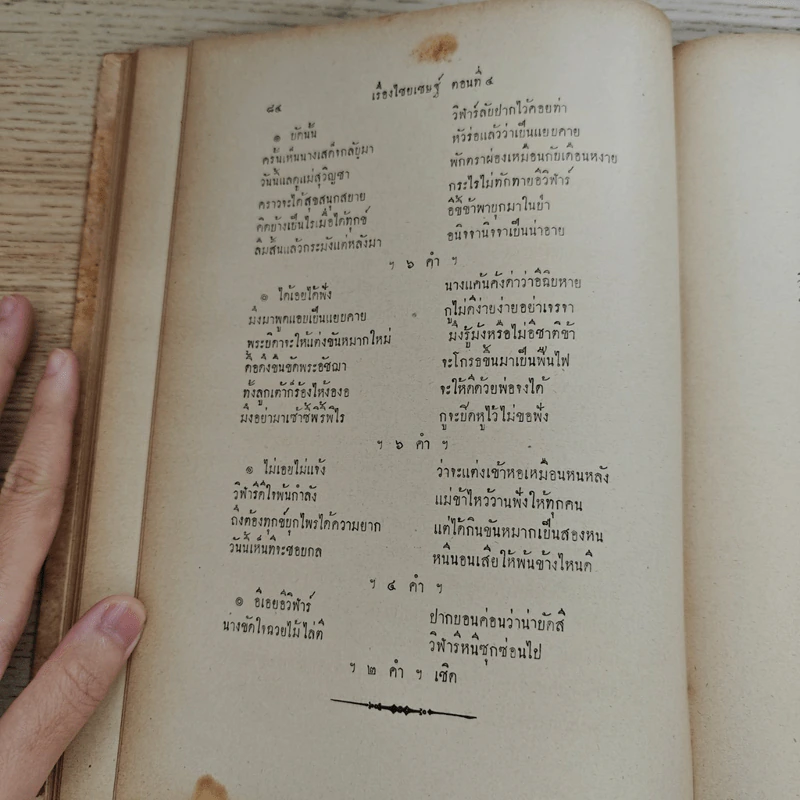 ๘๔ เรื่องไชยเชษฐ์ ตอนที่ ๔
๏ ยัดนั้น วิฬาร์ลัยปากไว้คอยท่า
ครั้นเห็นนางเสด็จกลับมา หัวร่อแล้วว่าเป็นแยบคาย
วันนี้แลดูแม่สุวิญชา พักตราผ่องเหมือนกับเดือนหงาย
คราวจะได้สุขสนุกสบาย กระไรไม่ทักทายอีวิฬาร์
คิดบ้างเป็นไรเมื่อได้ทุกข์ อีขี้ข้าพายุกมาในป่า
ลิมสันแล้วกระมังแต่หลังมา อนิจจานิจจาเป็นน่าอาย
ฯ ๖ คำ ฯ
๏ ได้เอยได้ฟัง นางแค้นคั่งด่าว่าอีฉิบหาย
มึงมาพูดแอบเป็นแยบคาย กูไม่ดีง่ายง่ายอย่าเจรจา
พระบิดาจะให้แต่งขันหมากใหม่ มึงรู้มั่งหรือไม่อีชาติข้า
ดื้อดึงขืนขัดพระอัชฌา จะโกรธขึ้นมาเป็นฟืนไฟ
ทั้งลูกเต้าก็ร้องไห้งองอ จะให้ดีด้วยพ่อจงได้
มึงอย่ามาเซ้าซี้พิรี้พิไร กูจะยึดหูไว้ไม่ขอฟัง
ฯ ๖ คำ ฯ
๏ ไม่เอยไม่แจ้ง ว่าจะแต่งเข้าหอเหมือนหนหลัง
วิฬาร์ดีใจพ้นกำลัง แม่ข้าไหว้วานฟังให้ทุกคน
ถึงต้องทุกข์ยุกไพรได้ความยาก แต่ได้กินขันหมากเป็นสองหน
วันนี้เห็นทีจะชอบกล หนีนอนเสียให้พ้นข้างไหนดี
ฯ ๔ คำ ฯ
๏ อีเอยอีวิฬาร์ ปากบอนค่อนว่าน่ายัดสี
นางขัดใจฉวยไม้ไล่ตี วิฬาร์หนีซุกซ่อนไป
ฯ ๒ คำ ฯ เชิด